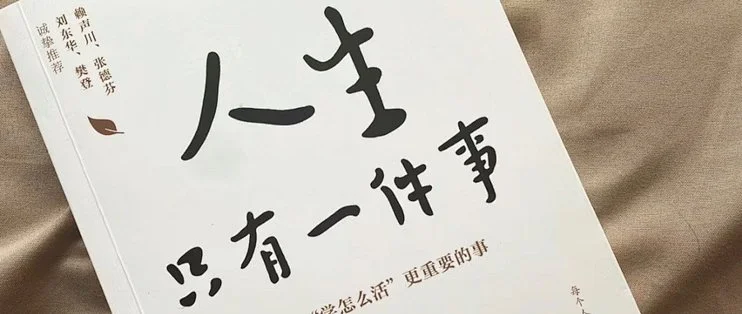 赖声川、张德芬
刘东华、樊登
诚挚推荐
人生
只有一件事
“学怎么活”更重要的事
每个人